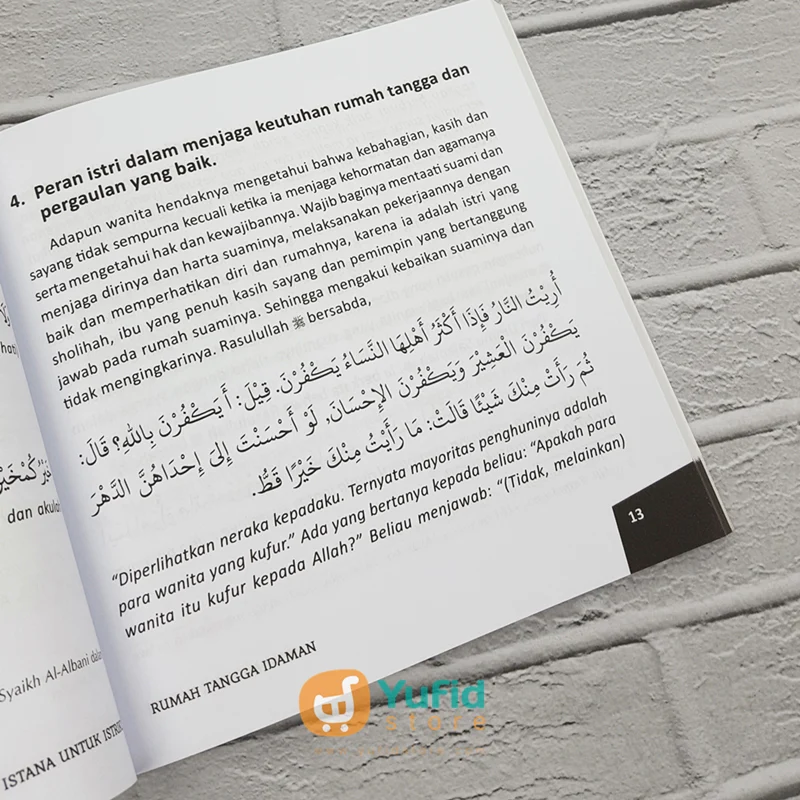 4. Peran istri dalam menjaga keutuhan rumah tangga dan
pergaulan yang baik.
Adapun wanita hendaknya mengetahui bahwa kebahagian, kasih dan
sayang tidak sempurna kecuali ketika ia menjaga kehormatan dan agamanya
serta mengetahui hak dan kewajibannya. Wajib baginya mentaati suami dan
menjaga dirinya dan harta suaminya, melaksanakan pekerjaannya dengan
baik dan memperhatikan diri dan rumahnya, karena ia adalah istri yang
sholihah, ibu yang penuh kasih sayang dan pemimpin yang bertanggung
jawab pada rumah suaminya. Sehingga mengakui kebaikan suaminya dan
tidak mengingkarinya. Rasulullah ﷺ bersabda,
أُرِيْتُ النَّارُ فَإِذَا أَكْثَرُ أَهْلِهَا النِّسَاءُ يَكْفُرْنَ. قِيْلَ: أَيَكْفُرْنَ بِاللهِ؟ قَالَ:
يَكْفُرْنَ الْعَشِيْرَ وَيَكْفُرْنَ الإِحْسَانَ, لَوْ أَحْسَنْتَ إِلَى إِحْدَاهُنَّ الدَّهْرَ
ثُمَّ رَأَتْ مِنْكَ شَيْئًا قَالَتْ: مَا رَأَيْتُ مِنْكَ خَيْرًا قَطُّ.
“Diperlihatkan neraka kepadaku. Ternyata mayoritas penghuninya adalah
para wanita yang kufur.” Ada yang bertanya kepada beliau: “Apakah para
wanita itu kufur kepada Allah?” Beliau menjawab: “(Tidak, melainkan)
13
RUMAH TANGGA IDAMAN
dan akula
Syaikh Al-Albani
ISTANA UNTUK
Yufid
store